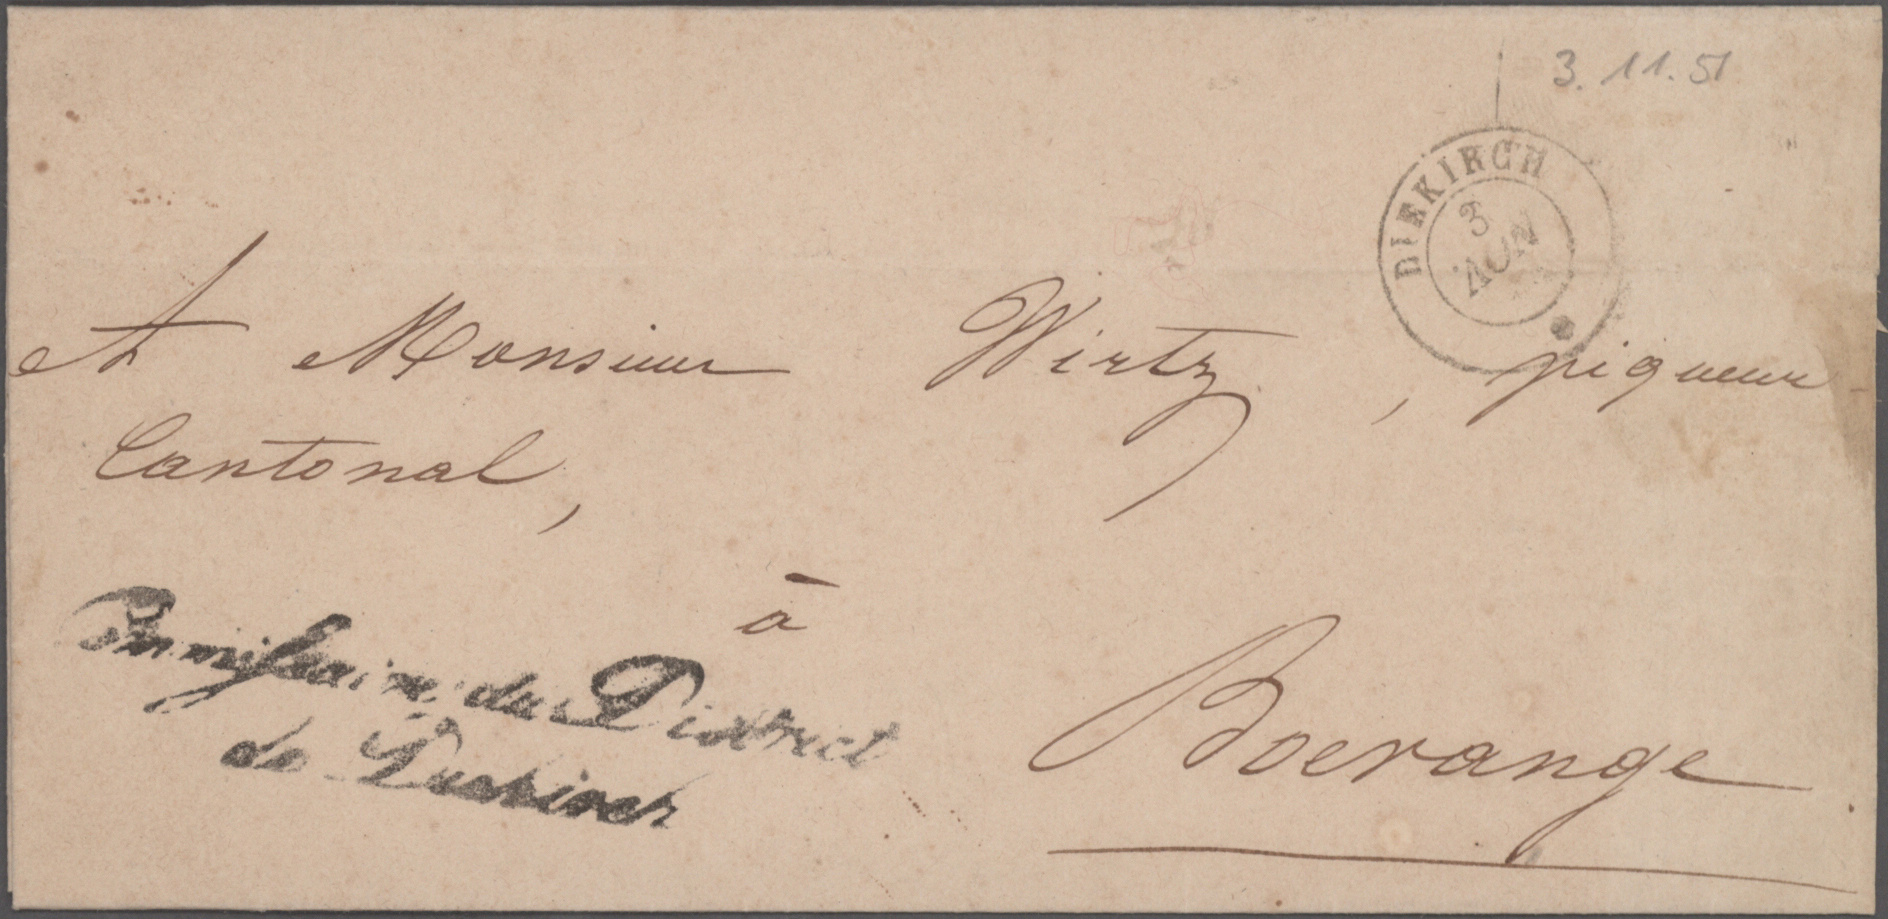 3. 11. 51
DIEKIRCH
3
JUN
A Monsieur Wirtz, piqueur
Cantonal,
à
Commissaire du District
de Diekirch
Boevange